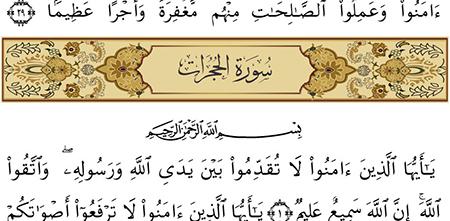 ءَامَنُوا۟ وَعَمِلُوا۟ ٱلصَّـٰلِحَـٰتِ مِنْهُم مَّغْفِرَةً وَأَجْرًا عَظِيمًۢا ﴿٢٩﴾
سُورَةُ الحُجُرَاتِ
بِسْمِ ٱللَّهِ ٱلرَّحْمَـٰنِ ٱلرَّحِيمِ
يَـٰٓأَيُّهَا ٱلَّذِينَ ءَامَنُوا۟ لَا تُقَدِّمُوا۟ بَيْنَ يَدَىِ ٱللَّهِ وَرَسُولِهِۦ ۖ وَٱتَّقُوا۟
ٱللَّهَ ۚ إِنَّ ٱللَّهَ سَمِيعٌ عَلِيمٌ ﴿١﴾ يَـٰٓأَيُّهَا ٱلَّذِينَ ءَامَنُوا۟ لَا تَرْفَعُوٓا۟ أَصْوَٰتَكُمْ